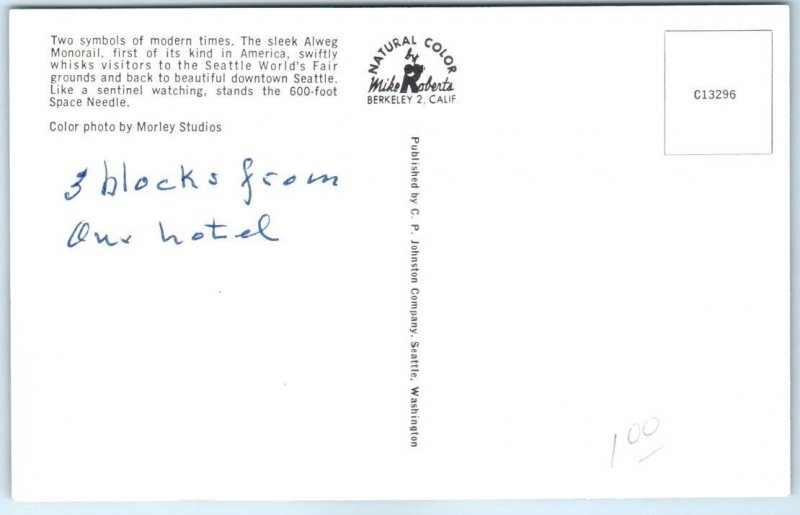 Two symbols of modern times. The sleek Alweg
Monorail, first of its kind in America, swiftly
whisks visitors to the Seattle World's Fair
grounds and back to beautiful downtown Seattle.
Like a sentinel watching, stands the 600-foot
Space Needle.
Color photo by Morley Studios
3 blocks from
Our hotel
NATURAL COLOR
by
Mike Roberts
BERKELEY 2, CALIF.
Published by C. P. Johnston Company, Seattle, Washington
C13296
1.00